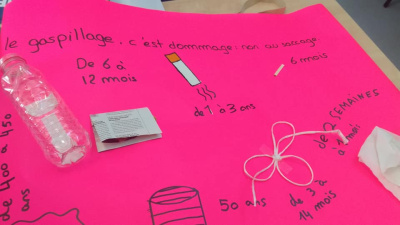 le gaspillage, c'est dommage; non au saccage.
De 6 à
12 mois
6 mois
de 1 à 3 ans
de 2 SEMAINES
à 1 mois
de 400 à 450
ans
50 ans
de 3 à
14 mois